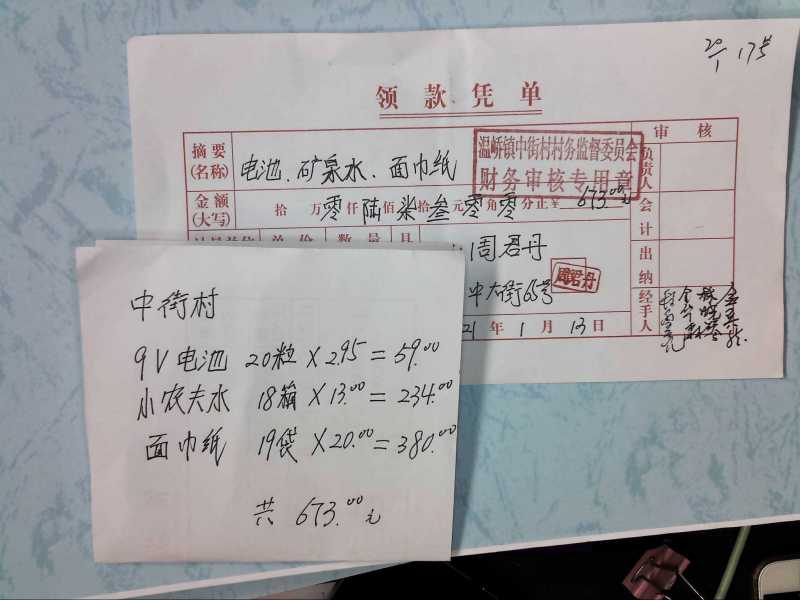 20/1 17号
领款凭单
审核
摘要(名称) 电池、矿泉水、面巾纸
温峤镇中街村村务监督委员会
财务审核专用章
负责人
金额(大写) 拾 万零仟陆佰柒拾叁元零角零分正¥ 673.00元
会计
单价 数量
周君丹
出纳
周君丹
大街65号
经手人
21年1月13日
中街村
9V电池 20粒 × 2.95 = 59.00
小农夫水 18箱 × 13.00 = 234.00
面巾纸 19袋 × 20.00 = 380.00
共 673.00元